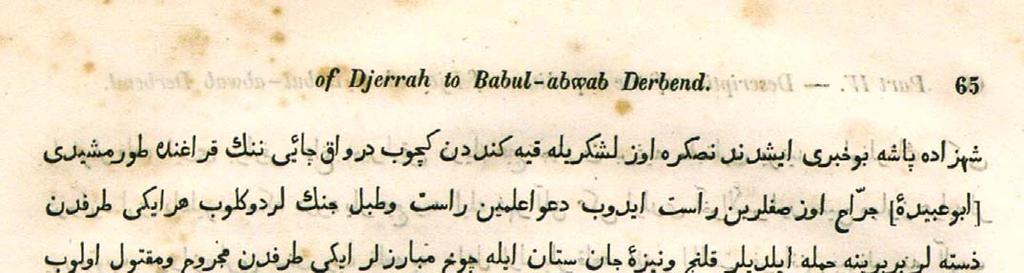 of Djerrah to Babul-abwab Derbend. 65
شهزاده پاشه بوخبرى ايشدند نصكره اوز لشكريله قيه كندـدن كچوب درواق چائى ننك قراغنده طورمشيدى
[ابوعبيدۀ] جرّاح اوز صفلرين راست ايدوب دعواعلمين راست وطبل جنك لردوكلوب هرايكى طرفدن
دسته لر بربرينه حمله ايلديلر قلنج ونيزۀ جان ستان ايله چوخ مبارزلر ايكى طرفدن مجروح ومقتول اولوب